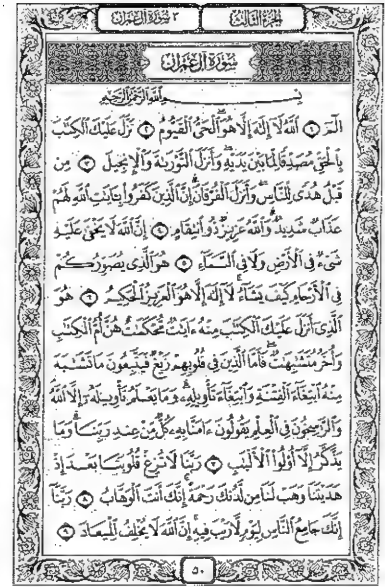 الجزء الثالث
٣ سورة آل عمران
سورة آل عمران
بِسْمِ اللَّهِ الرَّحْمَٰنِ الرَّحِيمِ
الٓمٓ ١ ٱللَّهُ لَآ إِلَٰهَ إِلَّا هُوَ ٱلْحَىُّ ٱلْقَيُّومُ ٢ نَزَّلَ عَلَيْكَ ٱلْكِتَٰبَ
بِٱلْحَقِّ مُصَدِّقًا لِّمَا بَيْنَ يَدَيْهِ وَأَنزَلَ ٱلتَّوْرَىٰةَ وَٱلْإِنجِيلَ ٣ مِن
قَبْلُ هُدًى لِّلنَّاسِ وَأَنزَلَ ٱلْفُرْقَانَ إِنَّ ٱلَّذِينَ كَفَرُوا۟ بِـَٔايَٰتِ ٱللَّهِ لَهُمْ
عَذَابٌ شَدِيدٌ وَٱللَّهُ عَزِيزٌ ذُو ٱنتِقَامٍ ٤ إِنَّ ٱللَّهَ لَا يَخْفَىٰ عَلَيْهِ
شَىْءٌ فِى ٱلْأَرْضِ وَلَا فِى ٱلسَّمَآءِ ٥ هُوَ ٱلَّذِى يُصَوِّرُكُمْ
فِى ٱلْأَرْحَامِ كَيْفَ يَشَآءُ لَآ إِلَٰهَ إِلَّا هُوَ ٱلْعَزِيزُ ٱلْحَكِيمُ ٦ هُوَ
ٱلَّذِىٓ أَنزَلَ عَلَيْكَ ٱلْكِتَٰبَ مِنْهُ ءَايَٰتٌ مُّحْكَمَٰتٌ هُنَّ أُمُّ ٱلْكِتَٰبِ
وَأُخَرُ مُتَشَٰبِهَٰتٌ فَأَمَّا ٱلَّذِينَ فِى قُلُوبِهِمْ زَيْغٌ فَيَتَّبِعُونَ مَا تَشَٰبَهَ
مِنْهُ ٱبْتِغَآءَ ٱلْفِتْنَةِ وَٱبْتِغَآءَ تَأْوِيلِهِۦ وَمَا يَعْلَمُ تَأْوِيلَهُۥٓ إِلَّا ٱللَّهُ
وَٱلرَّٰسِخُونَ فِى ٱلْعِلْمِ يَقُولُونَ ءَامَنَّا بِهِۦ كُلٌّ مِّنْ عِندِ رَبِّنَا وَمَا
يَذَّكَّرُ إِلَّآ أُو۟لُوا۟ ٱلْأَلْبَٰبِ ٧ رَبَّنَا لَا تُزِغْ قُلُوبَنَا بَعْدَ إِذْ
هَدَيْتَنَا وَهَبْ لَنَا مِن لَّدُنكَ رَحْمَةً إِنَّكَ أَنتَ ٱلْوَهَّابُ ٨ رَبَّنَآ
إِنَّكَ جَامِعُ ٱلنَّاسِ لِيَوْمٍ لَّا رَيْبَ فِيهِ إِنَّ ٱللَّهَ لَا يُخْلِفُ ٱلْمِيعَادَ ٩
٥٠